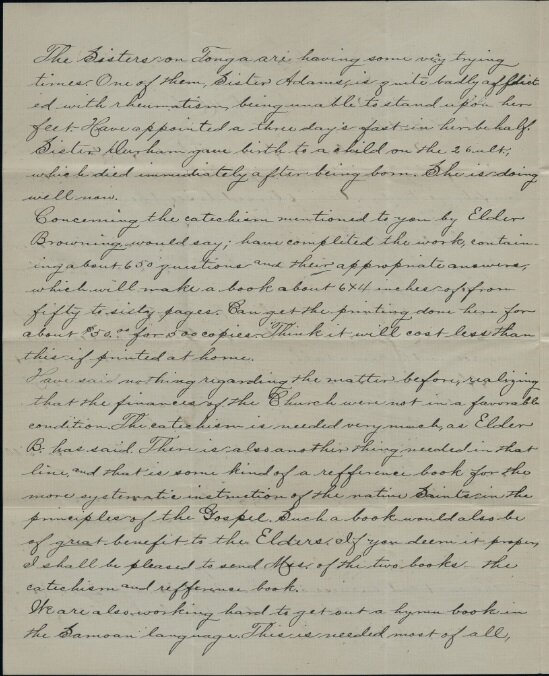 The Sisters on Tonga are having some very trying
times. One of them, Sister Adams, is quite badly afflict
ed with rheumatism, being unable to stand upon her
feet. Have appointed a three day's fast in her behalf.
Sister Durham gave birth to a child on the 26 ult,
which died immediately after being born. She is doing
well now.
Concerning the catechism mentioned to you by Elder
Browning would say; have complited the work, contain-
ing about 650 questions and their appropriate answers,
which will make a book about 6x4 inches of, from
fifty to sisty pages. Can get the printing done here for
about $50.00 for 500 copies. Think it will cost less than
this if printed at home.
Have said nothing regarding the matter before, realizing
that the finances of the Church were not in a favorable
condition. The catechism is needed very much, as Elder
B. has said. There is also another thing needed in that
line, and that is some kind of a refference book for the
more systematic instruction of the native Saints in the
principles of the Gospel. Such a book would also be
of great benefit to the Elders. If you deem it proper,
I shall be pleased to send Mss. of the two books - the
catechism and refference book.
We are also working hard to get out a hymn book in
the Samoan language. This is needed most of all,